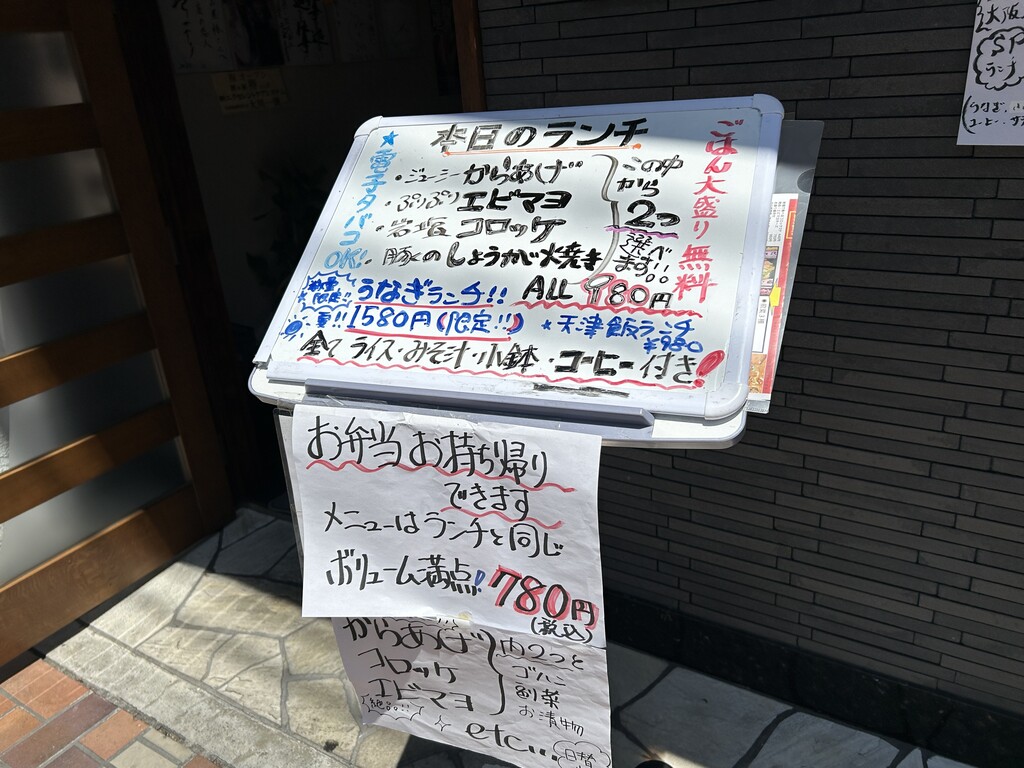 本日のランチ
★電子タバコOK!
・ジューシーからあげ
・ぷりぷりエビマヨ
・岩塩コロッケ
・豚のしょうが焼き
この中
から
2つ
選べ
ます!!
ごはん大盛り無料
数量
限定!!
うなぎランチ!!
ALL 980円
1580円(限定!!)
★天津飯ランチ
¥980
全て ライス・みそ汁・小鉢・コーヒー付き!
お弁当お持ち帰り
できます
メニューはランチと同じ
ボリューム満点! 780円
(税込)
からあげ
コロッケ
エビマヨ
内2つと
ゴハン
副菜
お漬物
etc...
日替
大阪
SP
ランチ